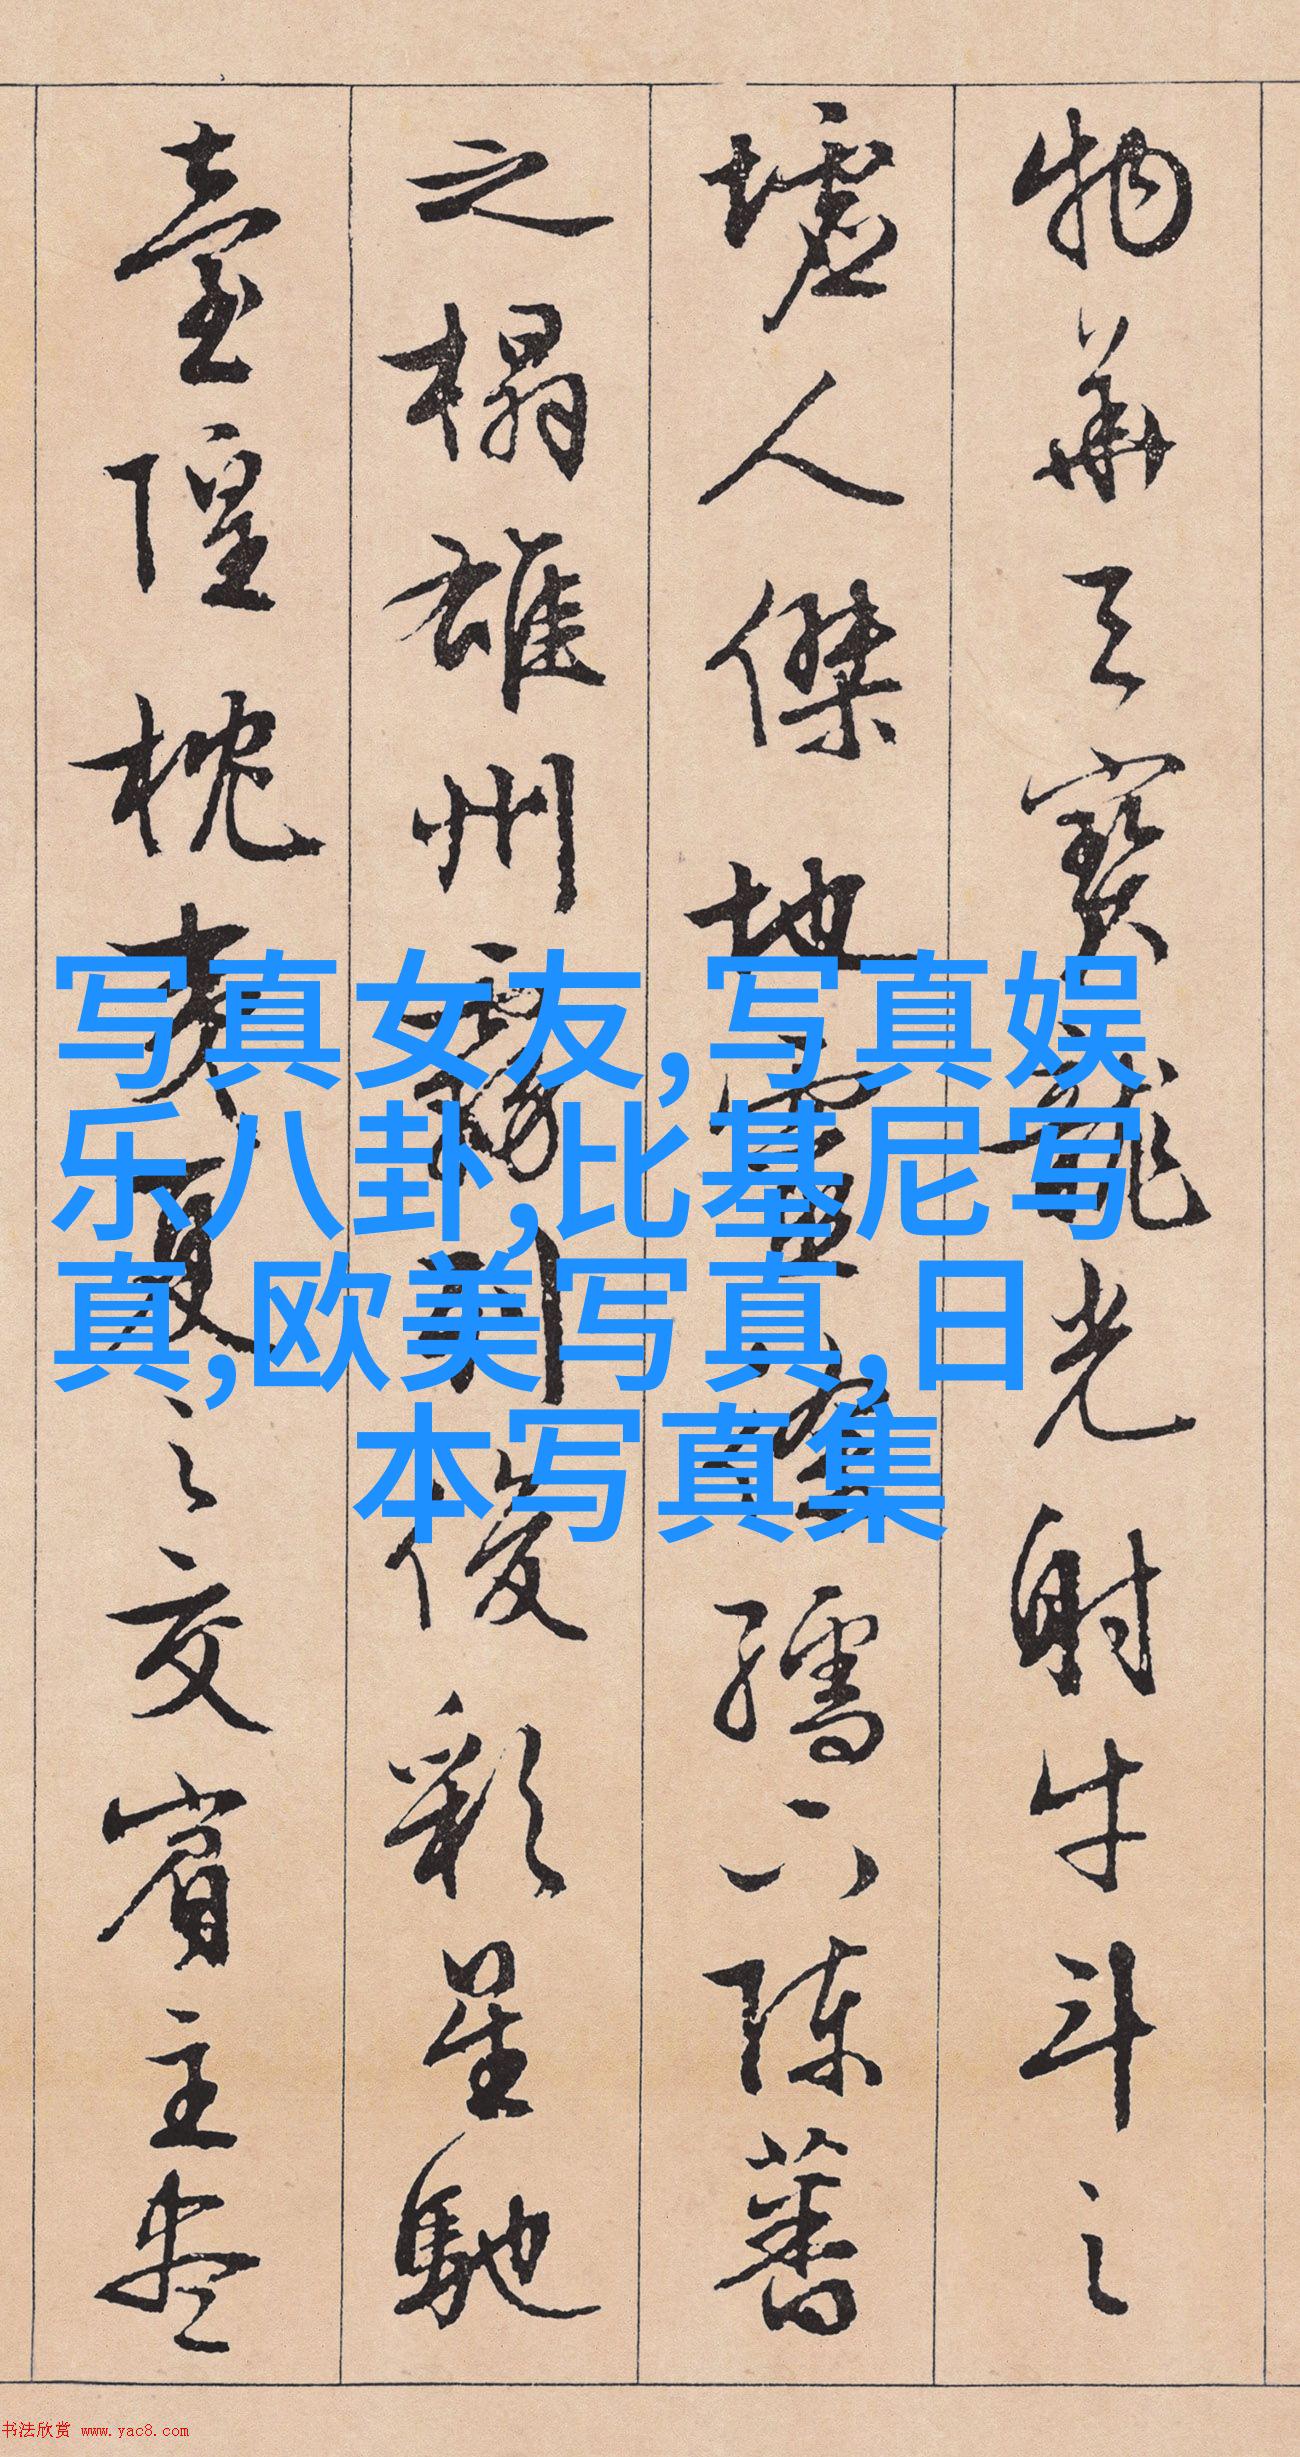 物華天寶龍光射牛斗之
墟人傑地靈徐孺下陳蕃
之榻雄州霧列俊彩星馳
臺隍枕夷夏之交賓主盡
写真女友,写真娱
乐八卦,比基尼写
真,欧美写真,日
本写真集
书法欣赏 www.yac8.com